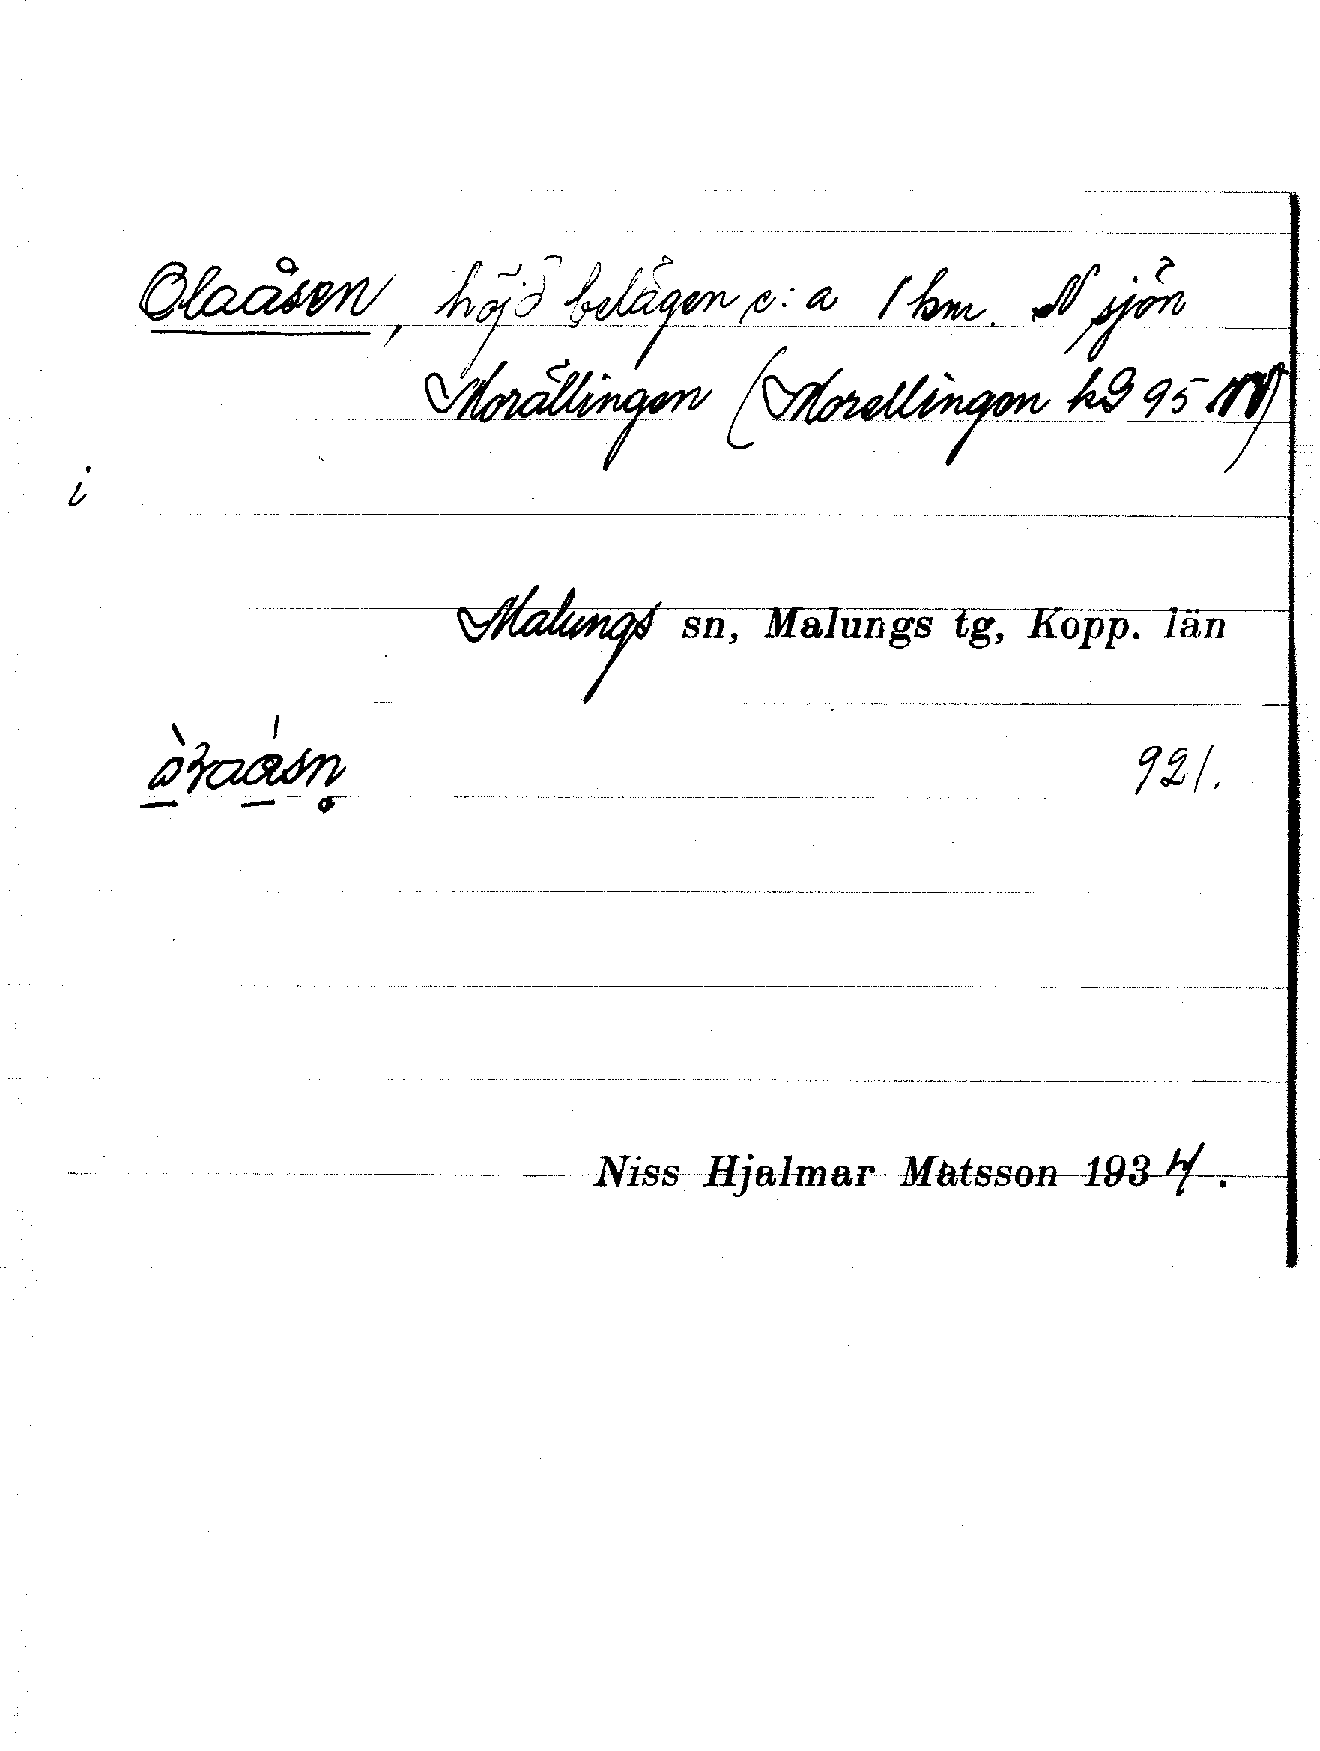 Olaåsen, höjd belägen c:a 1 km. N sjön
Morällingen (Morellingen kB 95 NV)
i
Malungs sn, Malungs tg, Kopp. län
921.
Niss Hjalmar Matsson 1934.